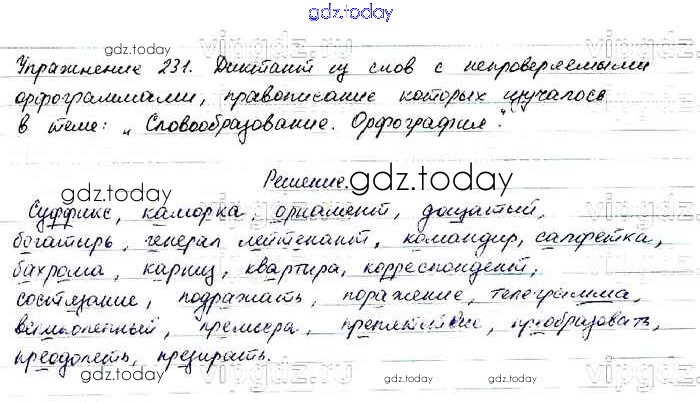 gdz.today
gdz.today vipgdz.ru
Упражнение 231. Диктант из слов с непроверяемыми
орфограммами, правописание которых изучалось
в теме: „Словообразование. Орфография".
gdz.today gdz.today
Решение. gdz.today
gdz.today vipgdz.ru
Суффикс, каморка, орнамент, дощатый,
богатырь, генерал лейтенант, командир, салфетка,
бахрома, карниз, квартира, корреспондент,
состязание, подражать, поражение, телеграмма,
вымышленный, премьера, препятствие, преобразовать,
преодолеть, презирать.
gdz.today gdz.today gdz.today
vipgdz.ru